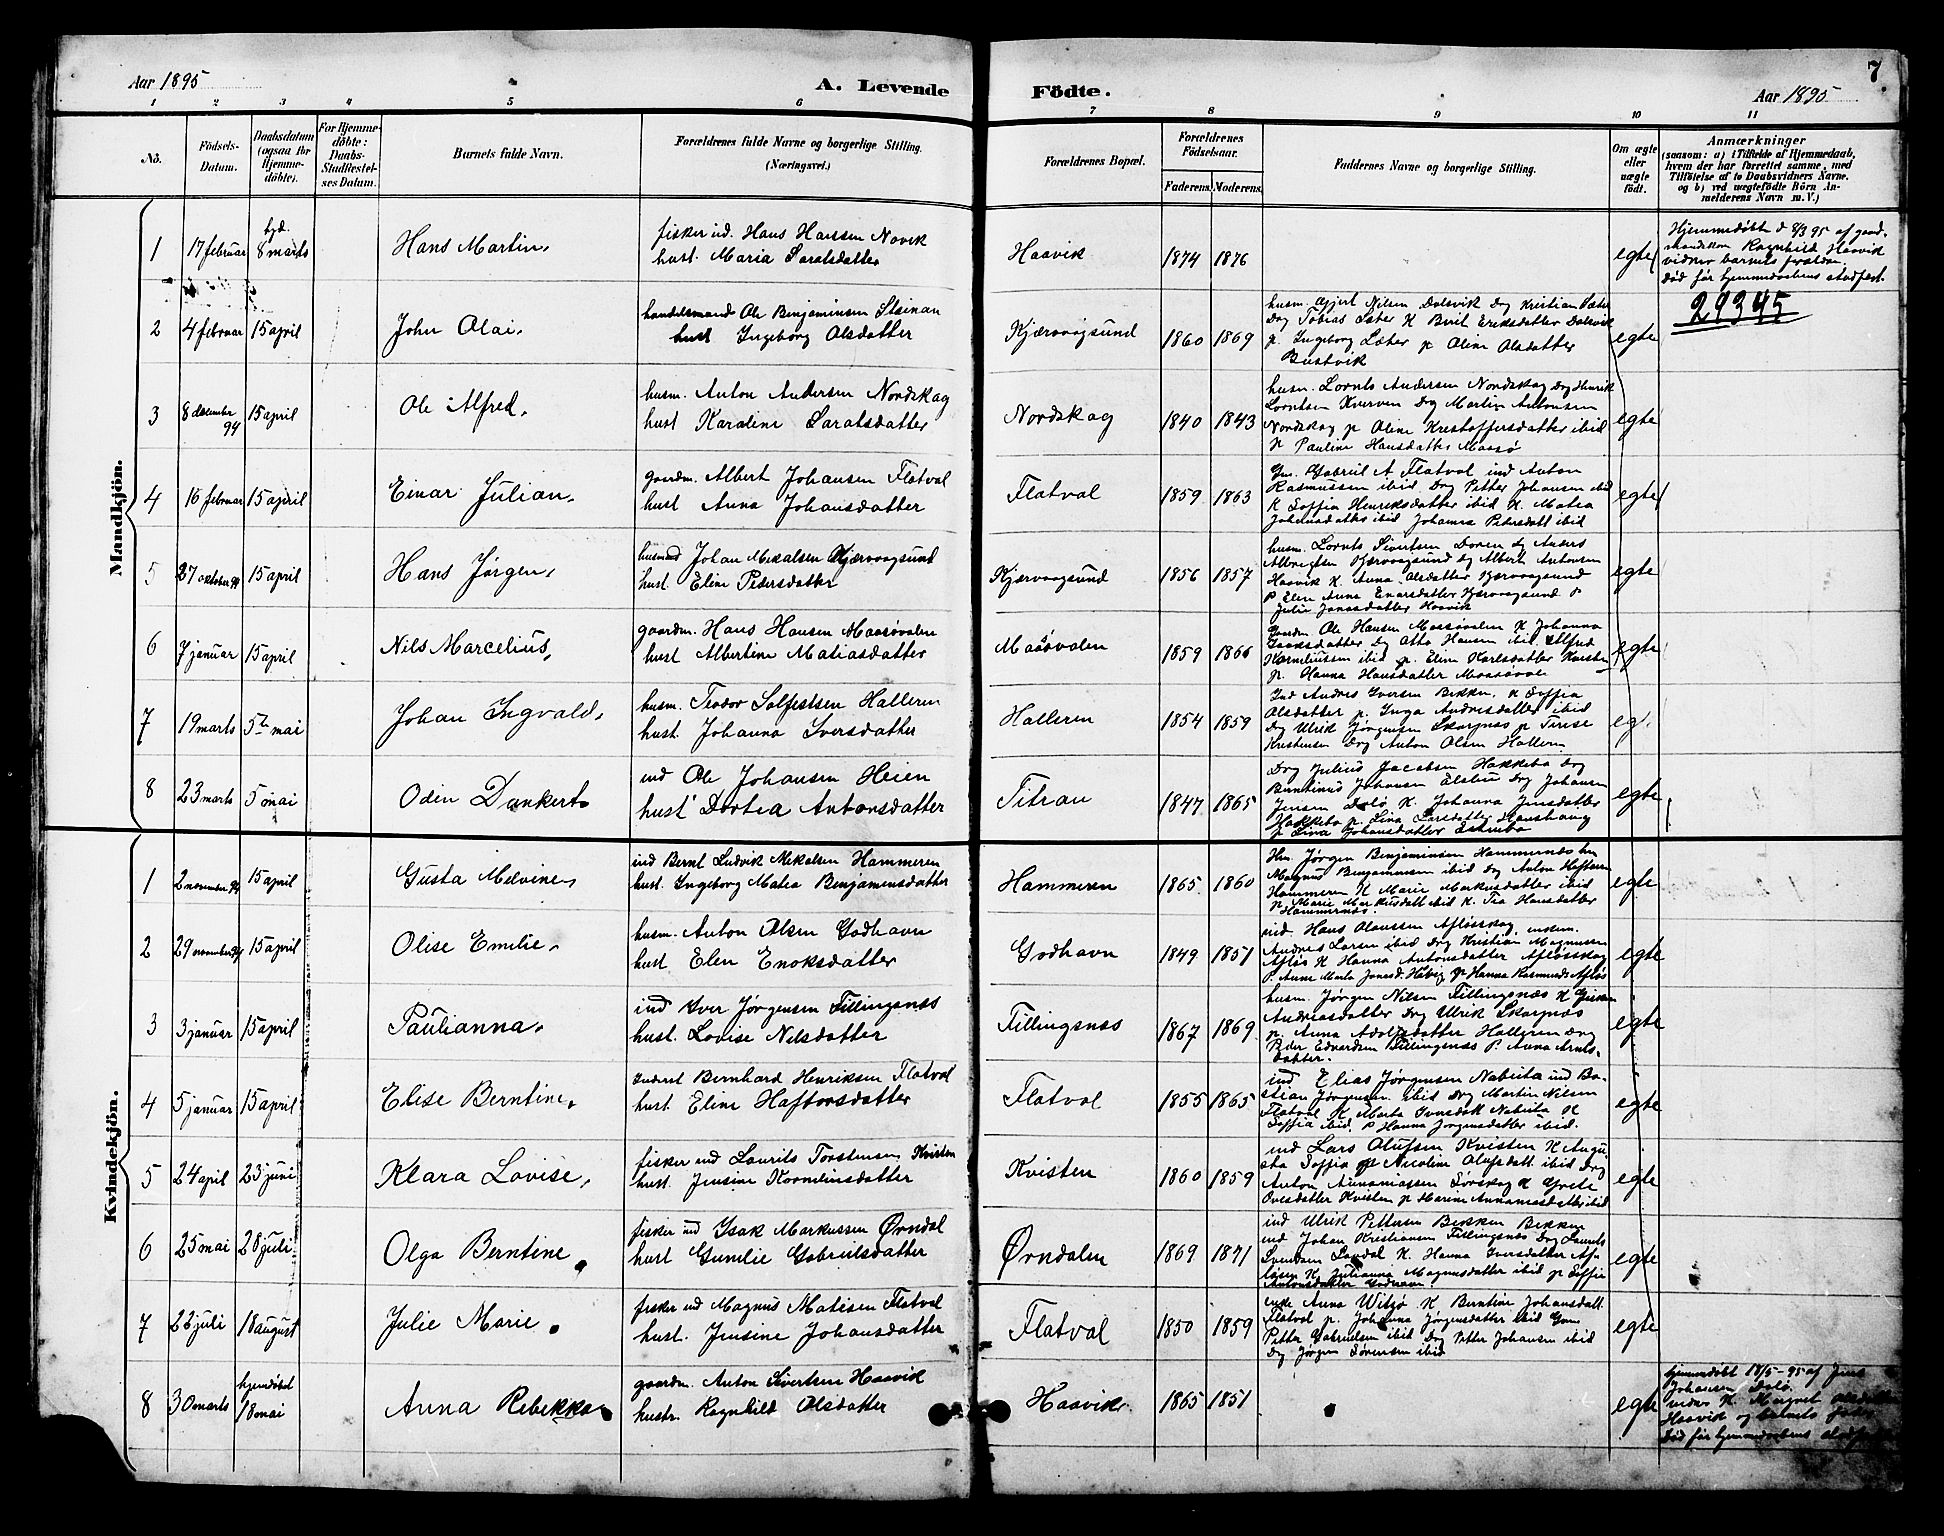 Aar 1895
A. Levende Födte.
Aar 1895
7
1 2 3 4 5 6 7 8 9 10 11
No.
Födsels-Datum.
Daabsdatum (ogsaa for Hjemmedöbte).
For Hjemmedöbte: Daabs-Stadfæstelses Datum.
Barnets fulde Navn.
Forældrenes fulde Navne og borgerlige Stilling. (Næringsvei.)
Forældrenes Bopæl.
Forældrenes Födselsaar.
Faderens. Moderens.
Faddernes Navne og borgerlige Stilling.
Om ægte eller uægte födt.
Anmærkninger
(saasom: a) i Tilfælde af Hjemmedaab, hvem der har forrettet samme, med Tilföielse af to Daabsvidners Navne. og b) ved uægtefödte Börn Anmelderens Navn m. V.)
Mandkjön.
1 17 februar hjd. 8 marts Hans Martin. fisker ind. Hans Hansen
hust. Maria Haavik 1874 1876 egte
Hjemmedøbt d 8/3 95 af
Ragnhild Haavik
vidner barnets forældre.
død før hjemmedaabens stadfest.
2 4 februar 15 april John Olai. Ole Benjaminsen Steinan
hust Ingeborg Olsdatter Kjærvaagsund 1860 1869 egte
husm. Gjert Nilsen Dalsvik Drg Kristian Sæter
Drg Tobias Sæter K Berit Eriksdatter Dalsvik
p. Ingeborg Sæter p Oline Olsdatter
29345
3 8 desember 94 15 april Ole Alfred. husm. Anton Andersen Nordskag
hust Karoline Nordskag 1840 1843 egte
husm. Lornts Andersen Nordskag Drg Henrik
Lorntsen Kverven Drg Martin Antonsen
Nordskag p Oline Kristoffersdatter ibid
p Pauline Hansdatter Maasø
4 16 februar 15 april Einar Julian. gaardm. Albert Johansen Flatval
hust Anna Johansdatter Flatval 1859 1863 egte
Gm. Gabriel A Flatval ind Anton
Rasmussen ibid Drg Petter Johansen ibid
K Soffia Henriksdatter ibid K. Matea
ibid Johanna Petersdatt ibid
5 27 oktober 94 15 april Hans Jørgen. husmand Johan Mekalsen Kjærvaagsund
hust. Eline Pedersdatter Kjærvaagsund 1856 1857 egte
husm. Lornts Sivertsen
Kjærvaagsund Drg Albert Antonsen
Haavik K. Anna Olsdatter Kjærvaagsund
P Elen Anna Kjærvaagsund P
Julie Jonasdatter Haavik
6 7 januar 15 april Nils Marcelius. gaardm. Hans Hansen Maasøvalen
hust Albertine Matiasdatter Maasøvalen 1859 1866 egte
Gaardm Ole Hansen Maasøvalen K Johanna
Drg Otto Hansen ibid Alfred
Korneliussen ibid p. Eline Karlsdatter Kvisten
p. Hanna Hansdatter
7 19 marts 5te mai Johan Ingvald. husm. Teodor Halleren
hust. Johanna Iversdatter Halleren 1854 1859 eg.
Ind Andres Iversen Bekken. K Soffia
Olsdatter p. Inga Andresdatter ibid
Drg Ulrik Jørgensen Skarpnæs p
Drg Anton Olsen Hallern
8 23 marts 5 mai Odin Dankert ind Ole Johansen Heien
hust Dortea Antonsdatter Titran 1847 1865 egte
Drg Julius Jacobsen Hakkebo Drg
Johansen Drg Johansen
K. Johanna Jensdatter
Hakkebo p. Lina Larsdatter
p Lina Johansdatter
Kvindekjön.
1 2 november 94 15 april Gusta Melvine. ind Bernt Ludvik Mekalsen Hammeren
hust. Ingeborg Matea Benjaminsdatter Hammeren 1865 1860 egte
Jørgen Benjaminsen Hammernes
Magnus Benjaminsen ibid Drg Anton
Hammeren K Marie Markusdatter ibid
p. Marie Markusdatt ibid K. Hansdatter
Hammernes.
2 29 november 94 15 april Olise Emilie. husm. Anton Olsen Godhavn
hust Elen Enoksdatter Godhavn 1849 1851 egte
ind. Hans Olaussen
Andres Larsen ibid Drg Kristian Magnussen
K Hanna Antonsdatter
P. Anne Marta p Hanna
3 3 januar 15 april Paulianna. ind Iver Jørgensen Fillingsnes
hust. Lovise Nilsdatter Fillingsnes 1867 1869 egte
husm. Jørgen Nilsen Fillingsnæs K
Andreasdatter Drg Ulrik Skarpnæs
p. Anna Adolfsdatter Halleren Drg
Peder Edvardsen Fillingsnæs P. Anna
4 5 januar 15 april Elise Berntine. Bernhard Henriksen Flatval
hust. Eline Haftorsdatter Flatval 1855 1865 egte
ind. Elias Jørgensen Nabeita ind Bastian
Jørgensen ibid Drg Martin Nilsen
Flatval K Marta Nabeita K
Soffia ibid. P Hanna Jørgensdatter ibid.
5 24 april 23 juni Klara Lovise. fisker ind Laurits Torstensen Kvisten
hust. Jensine Kornelinsdatter Kvisten 1860 1859 egte
ind Lars Olufsen Kvisten K Augusta
Soffia p Nicoline Olufsdatt ibid Drg
Anton Annaniassen Sørskag K Grete
Ovesdatter Kvisten p Marine Annaniasdatter ibid
6 25 mai 28 juli Olga Berntine fisker ind Isak Markussen Ørndal
hust Gunelie Gabrielsdatter Ørndalen 1869 1871 egte
ind Ulrik Pettersen Bekken Bekken
ind Johan Kristiansen Fillingsnes Drg Laurits
Svendsen K. Hanna Iversdatter
K Julianna Magnusdatter ibid p Soffie
Antonsdatter Godhavn.
7 23 juli 18 august Julie Marie. fisker ind Magnus Matisen Flatval
hust. Jensine Johansdatter Flatval 1850 1859 egte
enke Anna Witsø K Berntine Johansdatt
Flatval p. Johanna Jørgensdatter ibid Gm
Petter Gabrielsen ibid Drg Petter Johansen ibid
Drg Jørgen Sørensen ibid
8 30 marts hjemdøbt 18 mai Anna Rebekka gaardm. Anton Sivertsen Haavik
hustr. Ragnhild Olsdatter Haavik 1865 1851 egte
hjemmedøbt 18/5-95 af Jens
Johansen
vidner K. Margret Olsdatter
Haavik og barnets fader
død før hjemmedaabens stadfest